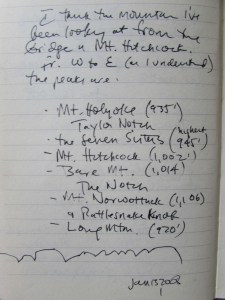 I think the Mountain I've
been looking at from the
bridge is Mt. Hitchcock.
fr. W to E (as I understand)
the peaks are:
· Mt. Holyoke (935')
Taylor Notch
· the Seven Sisters (highest 945')
- Mt. Hitchcock (1,002')
- Bare Mt. (1,014)
The Notch
- Mt. Norwottuck (1,106)
& Rattlesnake Knob
- Long Mtn. (920')
Jan 13 2008